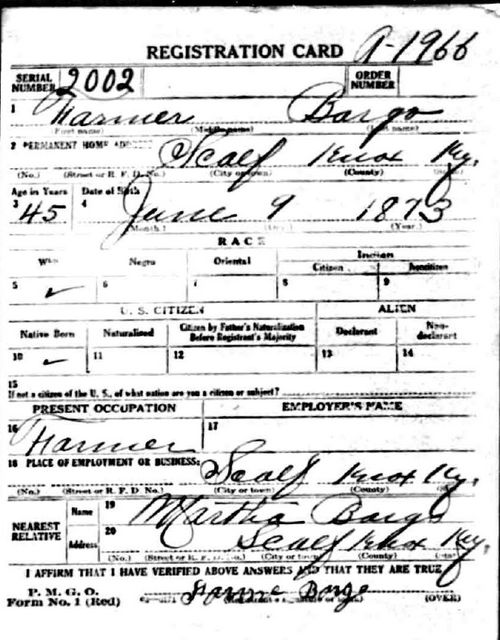 REGISTRATION CARD A-1966
SERIAL NUMBER 2002 ORDER NUMBER
1 Farmer Bargo
(First name) (Middle name) (Last name)
2 PERMANENT HOME ADDRESS Scalf Knox Ky.
(No.) (Street or R. F. D. No.) (City or town) (County) (State)
Age in Years Date of Birth
3 45 4 June 9 1873
(Month.) (Day.) (Year.)
RACE
White Negro Oriental Indian
Citizen Noncitizen
5 ✓ 6 7 8 9
U. S. CITIZEN ALIEN
Native Born Naturalized Citizen by Father's Naturalization Before Registrant's Majority Declarant Non-declarant
10 ✓ 11 12 13 14
15
If not a citizen of the U. S., of what nation are you a citizen or subject?
PRESENT OCCUPATION EMPLOYER'S NAME
16 Farmer 17
18 PLACE OF EMPLOYMENT OR BUSINESS: Scalf Knox Ky.
(No.) (Street or R. F. D. No.) (City or town) (County) (State)
NEAREST RELATIVE Name 19 Martha Bargo
Address 20 Scalf Knox Ky
(No.) (Street or R. F. D. No.) (City or town) (County) (State)
I AFFIRM THAT I HAVE VERIFIED ABOVE ANSWERS AND THAT THEY ARE TRUE
P. M. G. O.
Form No. 1 (Red) Bargo (OVER)